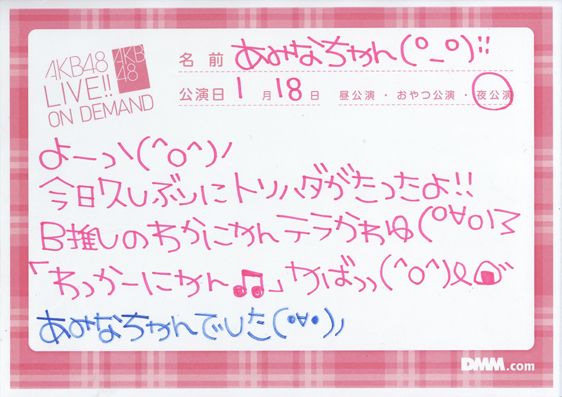 AKB48
LIVE!!
ON DEMAND
AKB
48
名前 あみなちゃん(°_°)!!
公演日 1月18日 昼公演・おやつ公演・夜公演
よーっ\(^o^)ノ
今日久しぶりにトリハダがたったよ!!
B推しのわかにゃんテラかわゆ(°∀°)
「わっかーにゃん♫」やばっっ(^o^)
あみなちゃんでした(°∀°)ノ
DMM.com